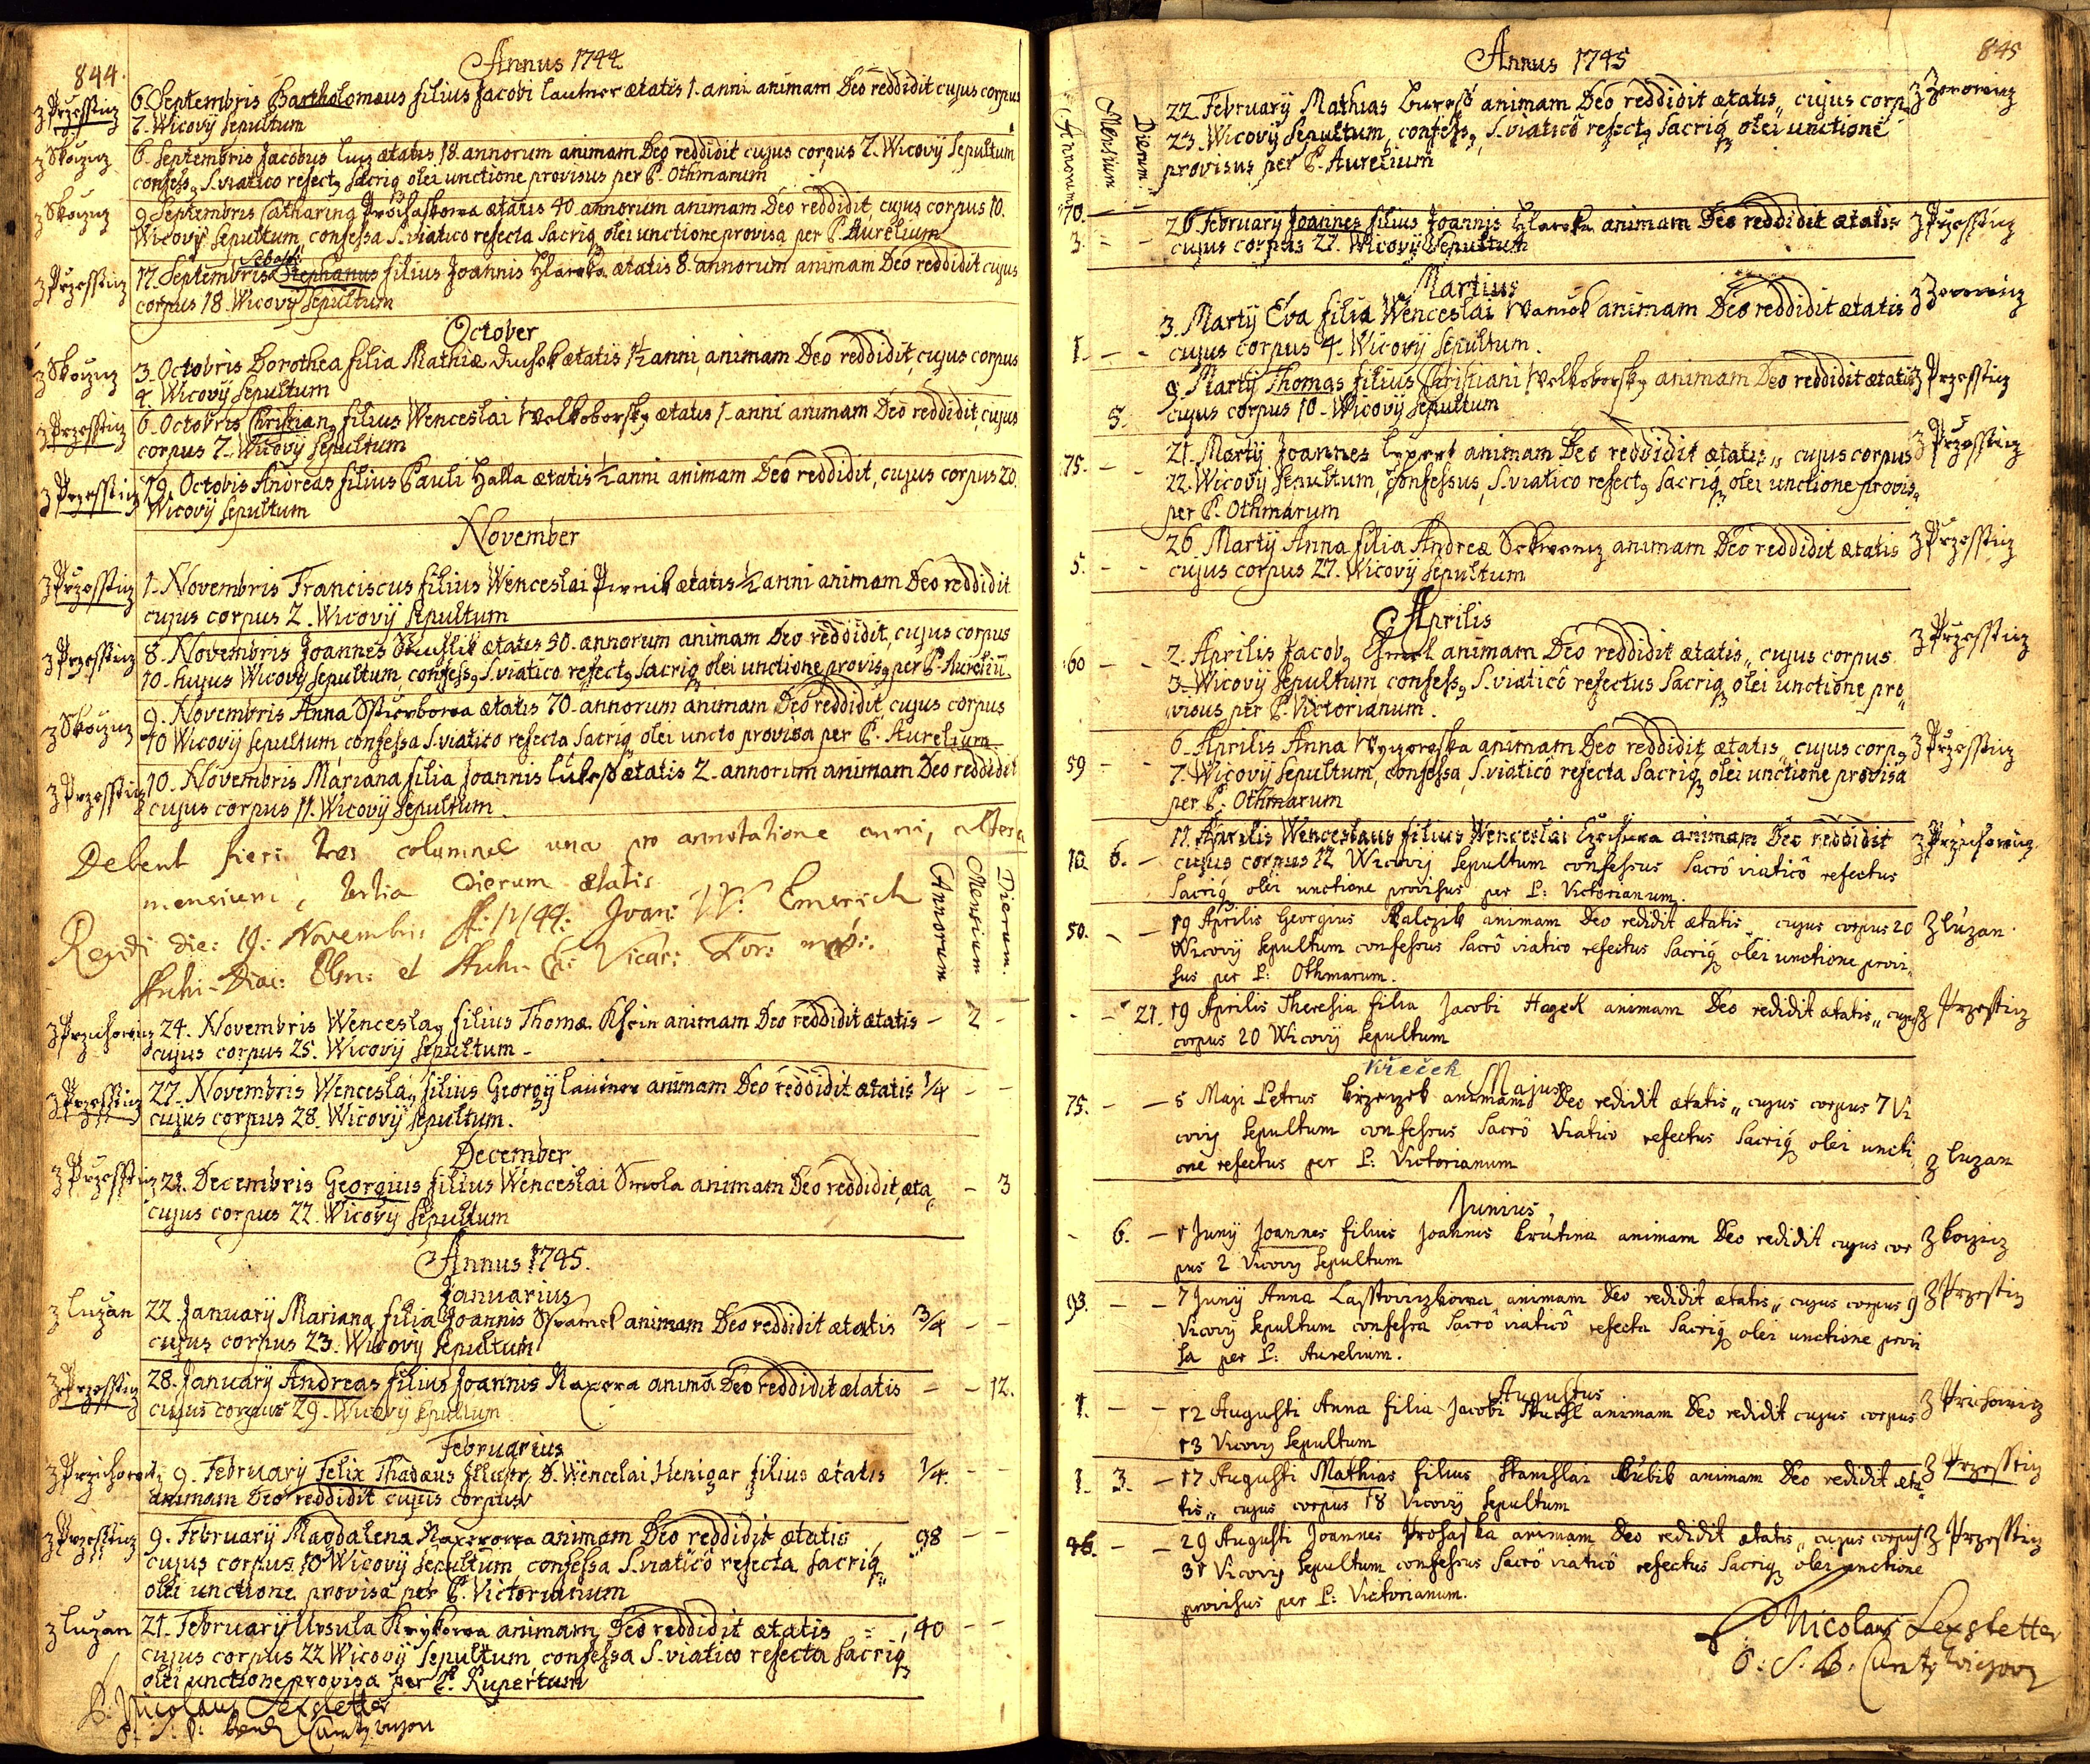 844.
Annus 1744
z Przesstiz
6 Septembris Bartholomæus filius Jacobi Lautner ætatis 1. anni animam Deo reddidit cujus corpus
7. Wicovÿ sepultum
z Skoczicz
6. Septembris Jacobus ætatis 18. annorum animam Deo reddidit cujus corpus 7. Wicovÿ sepultum
confess9 S. viatico refect9 sacriq3 olei unctione provisus per P. Othmarum
z Skoczicz
9 Septembris Catharina Prochaskowa ætatis 40. annorum animam Deo reddidit, cujus corpus 10.
Wicovÿ sepultum, confessa S. viatico refecta sacriq3 olei unctione provisa per P. Aurelium
z Przesstiz
17. Septembris Stephanus filius Joannis Hlawka ætatis 8. annorum animam Deo reddidit cujus
corpus 18. Wicovÿ sepultum
October
z Skoczicz
3. Octobris Dorothea filia Mathiæ Duchek ætatis 1½ anni, animam Deo reddidit, cujus corpus
4. Wicovÿ sepultum
z Przesstiz
6. Octobris Christian9 filius Wenceslai Welkoborsky ætatis 1. anni animam Deo reddidit, cujus
corpus 7. Wicovÿ sepultum
z Przesstiz
19. Octobis Andreas filius Pauli Halla ætatis ½ anni animam Deo reddidit, cujus corpus 20.
Wicovÿ sepultum
November
z Przesstiz
1. Novembris Franciscus filius Wenceslai ætatis ½ anni animam Deo reddidit
cujus corpus 2. Wicovÿ sepultum
z Przesstiz
8. Novembris Joannes ætatis 50. annorum animam Deo reddidit, cujus corpus
10. hujus Wicovÿ sepultum, confess9 S. viatico refect9 sacriq3 olei unctione provis9 per P. Aureliu.
z Skoczicz
9. Novembris Anna ætatis 70. annorum animam Deo reddidit, cujus corpus
10 Wicovÿ sepultum confessa S. viatico refecta sacriq3 olei uncto provisa per P. Aurelium
z Przesstiz
10. Novembris Mariana filia Joannis Lukess ætatis 2. annorum animam Deo reddidit
cujus corpus 11. Wicovÿ sepultum.
Debent fieri tres columnel una pro annotatione anni, altera
mensium, tertia dierum ætatis
Annorum
Mensium
Dierum.
die: 19: Novembris A: 1744: Joan: W: Emerich
et Vicar: For: mp:
z Przichowicz
24. Novembris Wencesla9 filius Thomæ Klein animam Deo reddidit ætatis - 2 -
cujus corpus 25. Wicovÿ sepultum -
z Przesstiz
27. Novembris Wencesla9 filius Georgÿ Lautner animam Deo reddidit ætatis ¼ - -
cujus corpus 28. Wicovÿ sepultum.
December
z Przesstiz
21. Decembris Georgius filius Wenceslai Smola animam Deo reddidit, æta - 3
cujus corpus 22. Wicovÿ sepultum
Annus 1745.
Januarius
z Luzan
22. Januarÿ Mariana filia Joannis animam Deo reddidit ætatis ¾ - -
cujus corpus 23. Wicovÿ sepultum
z Przesstiz
28. Januarÿ Andreas filius Joannis Naxera animã Deo reddidit ætatis - - 12.
cujus corpus 29. Wicovÿ sepultum
Februarius
9. Februarÿ Felix Thadæus D. Wencelai Henigar filius ætatis ¼. - -
animam Deo reddidit cujus corpus
z Przesstiz
9. Februarÿ Magdalena Naxerowa animam Deo reddidit ætatis 98 - -
cujus corpus 10 Wicovÿ sepultum confessa S. viaticô refecta sacriq3
olei unctione provisa per P. Victorianum
z Luzan
21. Februarÿ Ursula animam Deo reddidit ætatis 40 - -
cujus corpus 22 Wicovÿ sepultum confessa S. viatico refecta sacriq3
olei unctione provisa per P. Rupertum
P. Nicolaus Lexstetter
845
Annus 1745
Annorum
Mensium
Dierum.
70. - -
22. Februarÿ Mathias animam Deo reddidit ætatis„ cujus corp9
23. Wicovÿ sepultum, confess9, S. viaticô refect9 sacriq3 olei unctione
provisus per P. Aurelium
z Zerowicz
3. - -
26. Februarÿ Joannes filius Joannis Hlawka animam Deo reddidit ætatis
cujus corpus 27. Wicovÿ sepultum
z Przesstiz
Martius
1. - -
3. Martÿ Eva filia Wenceslai Wanick animam Deo reddidit ætatis
cujus corpus 4. Wicovÿ sepultum.
z Zerowicz
5.
9. Martÿ Thomas filius Christiani Welkoborsky animam Deo reddidit ætatis
cujus corpus 10. Wicovÿ sepultum
z Przesstiz
75. - -
21. Martÿ Joannes animam Deo reddidit ætatis„ cujus corpus
22. Wicovÿ sepultum, confessus, S. viatico refect9 sacriq3 olei unctione provis9
per P. Othmarum
z Przesstiz
5. - -
26. Martÿ Anna filia Andreæ animam Deo reddidit ætatis
cujus corpus 27. Wicovÿ sepultum
z Przesstiz
Aprilis
60 - -
2. Aprilis Jacob9 animam Deo reddidit ætatis„ cujus corpus
3. Wicovÿ sepultum confess9 S. viaticô refectus sacriq3 olei unctione pro„
visus per P. Victorianum.
z Przesstiz
59 - -
6. Aprilis Anna animam Deo reddidit ætatis„ cujus corp9
7. Wicovÿ sepultum, confessa, S. viaticô refecta sacriq3 olei unctione provisa
per P. Othmarum
z Przesstiz
10. 6. -
11. Aprilis Wenceslaus filius Wenceslai animam Deo reddidit
cujus corpus 12 Wicovÿ sepultum confessus sacrô viaticô refectus
sacriq3 olei unctione provisus per P: Victorianum.
z Przichowicz
50. - -
19 Aprilis Georgius animam Deo redidit ætatis„ cujus corpus 20
Wicovÿ sepultum confessus sacrô viatico refectus sacriq3 olei unctione provi„
sus per P: Othmarum.
z Luzan
- - 21.
19 Aprilis Theresia filia Jacobi Hageck animam Deo redidit ætatis„ cujus
corpus 20 Wicovÿ sepultum
z Przesstiz
Křeček
Majus
75. - -
5 Maji Petrus Krzeczek animam Deo redidit ætatis„ cujus corpus 7 Vi
covÿ sepultum confessus sacrô viatico refectus sacriq3 olei uncti
one refectus per P: Victorianum
z Luzan
Junius
- 6. -
1 Junÿ Joannes filius Joannis Krutina animam Deo redidit cujus cor
pus 2 Vicovÿ sepultum
93. - -
7 Junÿ Anna animam Deo redidit ætatis„ cujus corpus 9
Vicovÿ sepultum confessa sacrô viaticô refecta sacriq3 olei unctione provi
sa per P: Aurelium.
z Przestiz
Augustus
1. - -
12 Augusti Anna filia Jacobi animam Deo redidit cujus corpus
13 Vicovÿ sepultum
z Prichowicz
1. 3. -
17 Augusti Mathias filius Stanislai Kubik animam Deo redidit æta
tis„ cujus corpus 18 Vicovÿ sepultum
z Przesstiz
46. - -
29 Augusti Joannes Prohaska animam Deo redidit ætatis„ cujus corpus
31 Vicovÿ sepultum confessus sacrô viaticô refectus sacriq3 olei unctione
provisus per P: Victorianum.
z Przesstiz
P Nicolaus Lexstetter